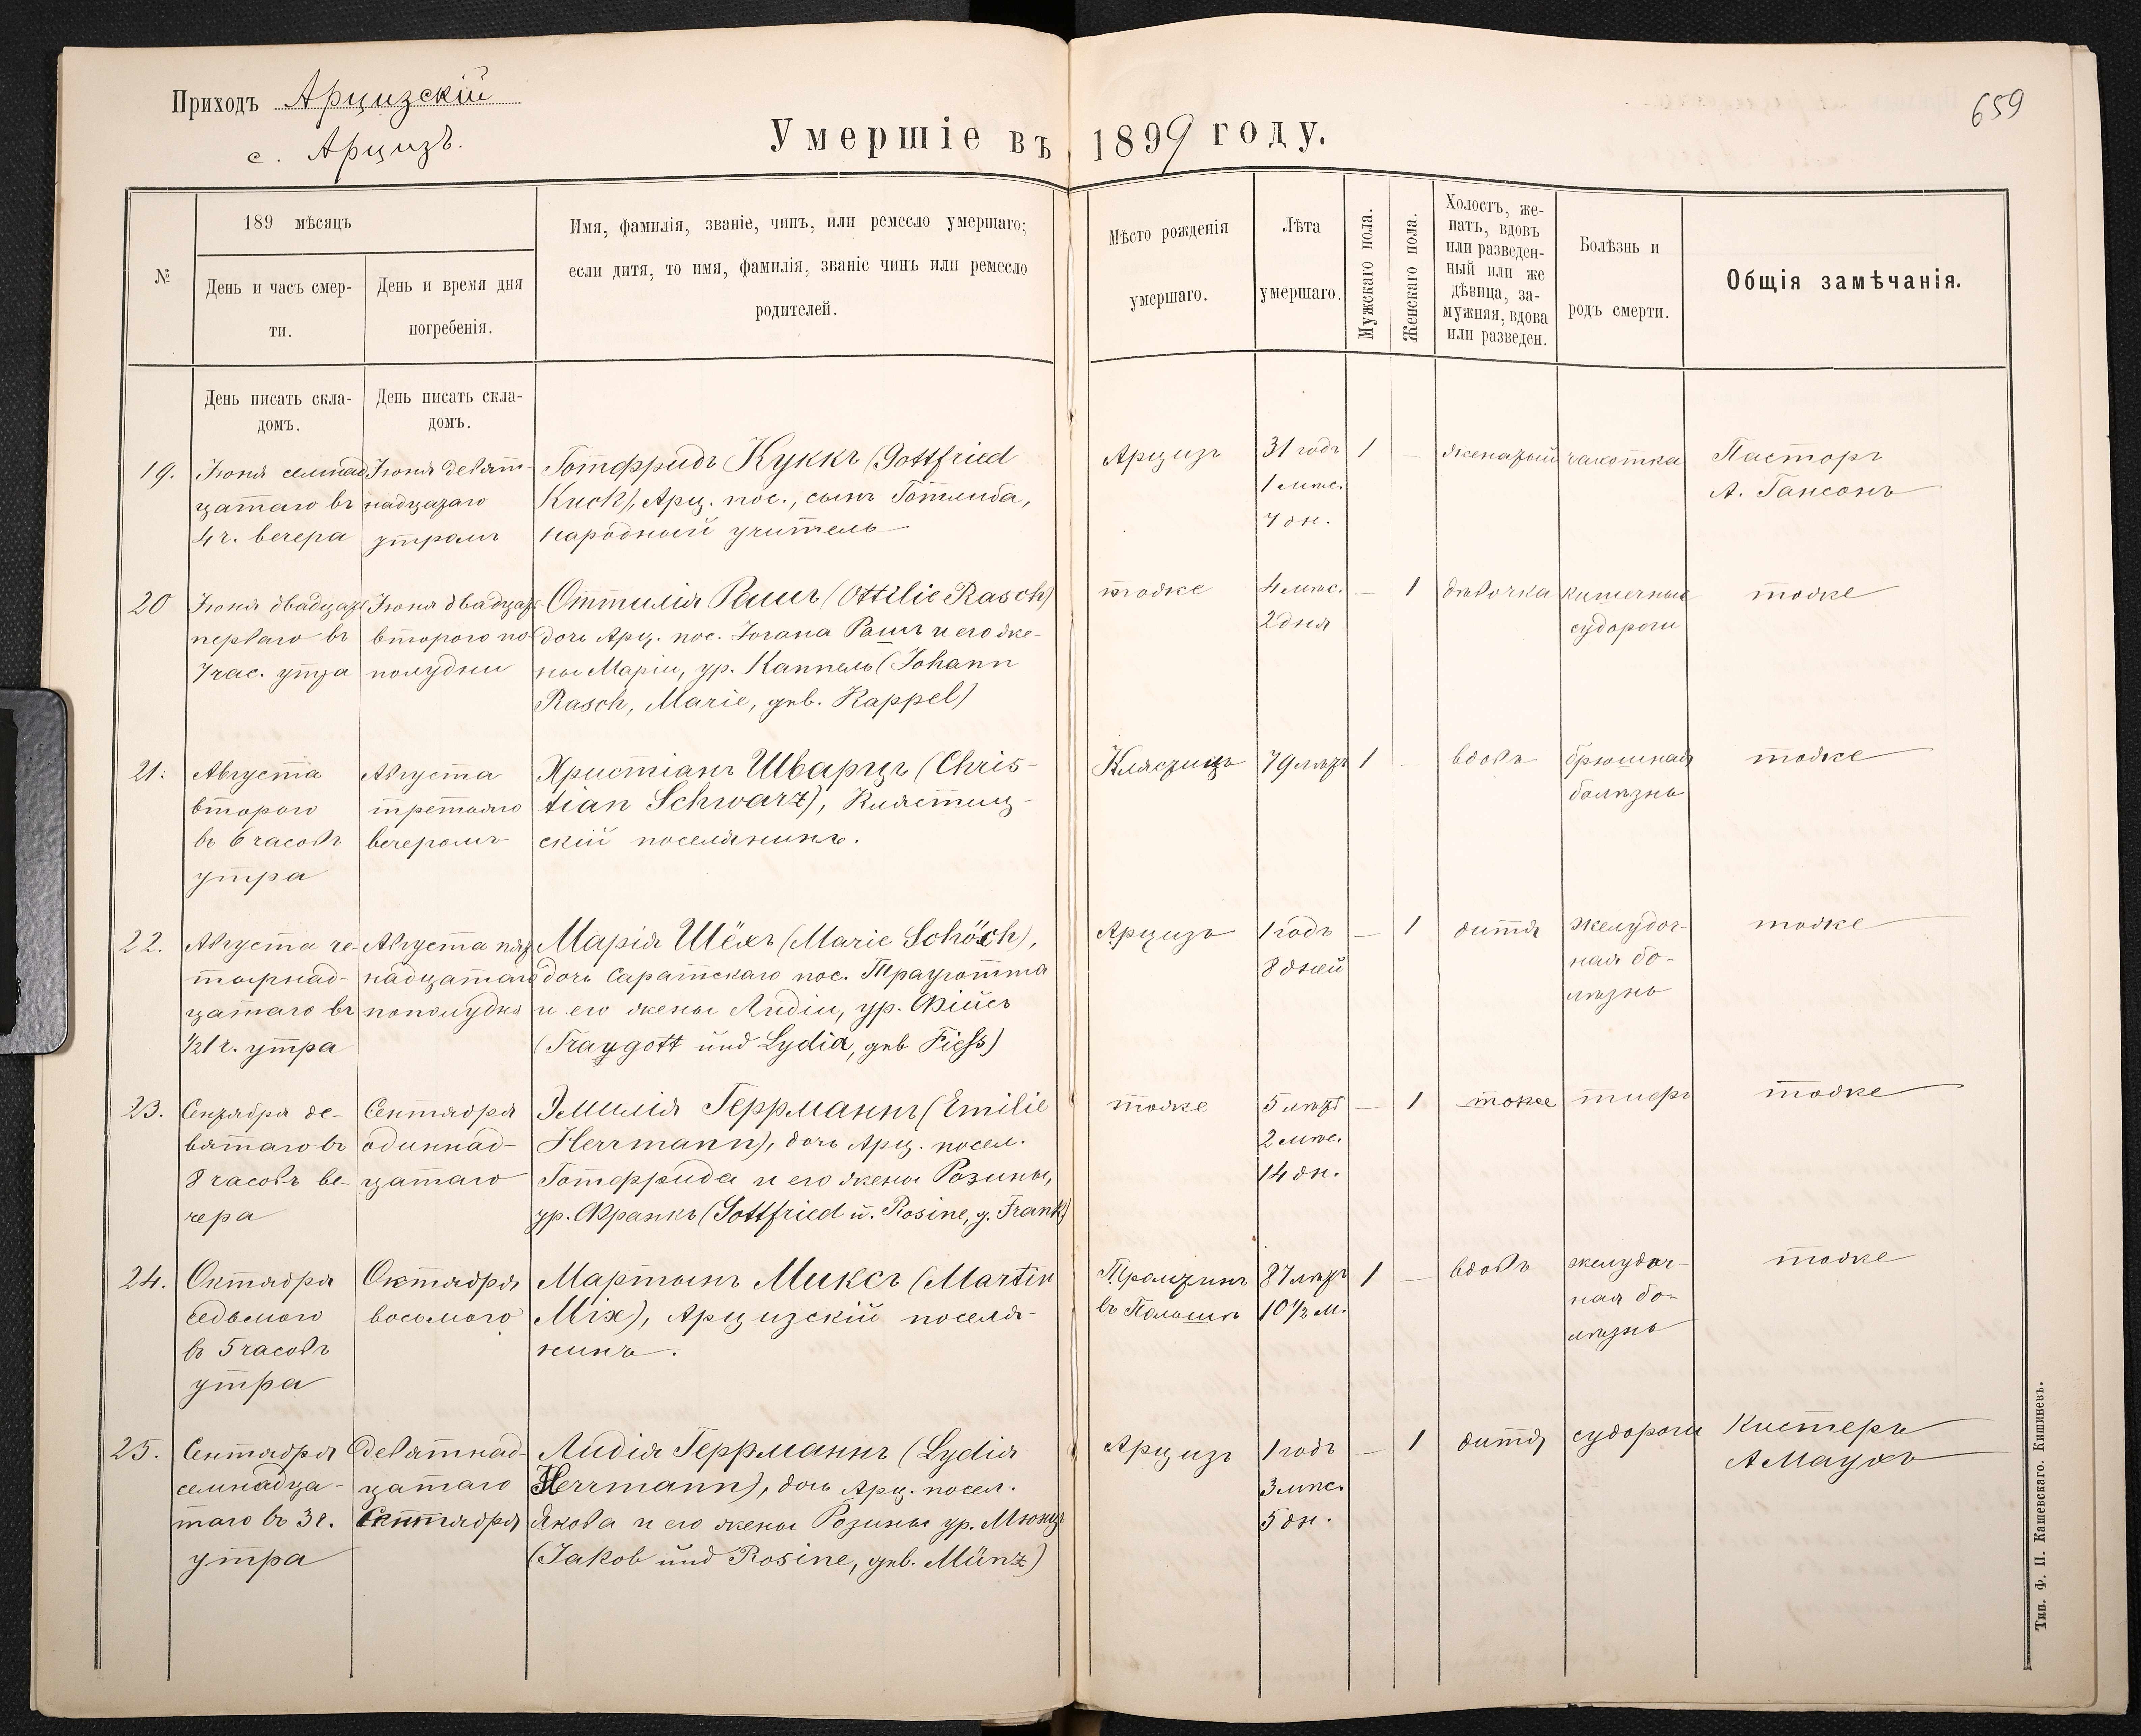 Приходъ Арцизскій
с. Арцизъ.
659
Умершіе въ 1899 году.
№
189 мѣсяцъ
День и часъ смерти.
День и время дня погребенія.
Имя, фамилія, званіе, чинъ, или ремесло умершаго;
если дитя, то имя, фамилія, званіе чинъ или ремесло
родителей.
Мѣсто рожденія
умершаго.
Лѣта
умершаго.
Мужскаго пола.
Женскаго пола.
Холостъ, же-
натъ, вдовъ
или разведен-
ный или же
дѣвица, за-
мужняя, вдова
или разведен.
Болѣзнь и
родъ смерти.
Общія замѣчанія.
День писать скла-
домъ.
День писать скла-
домъ.
19.
Іюня семнад
цатаго въ
4 ч. вечера
Іюня девят-
надцатаго
утромъ
Готфридъ Куккъ (Gottfried
Kuck), Арц. пос., сынъ Готлиба,
народный учитель
Арцизъ
31 годъ
1 мѣс.
7 дн.
1
—
женатый
чахотка
Пасторъ
А. Гансонъ
20
Іюня двадцать
перваго въ
7 час. утра
Іюня двадцать
второго по
полудни
Оттилія Рашъ (Ottilie Rasch)
дочь Арц. пос. Іогана Рашъ и его же-
ны Маріи, ур. Каппель (Johann
Rasch, Marie, geb. Kappel)
тоже
4 мѣс.
2 дня
—
1
дѣвочка
кишечные
судороги
тоже
21.
Августа
второго
въ 6 часовъ
утра
Августа
третьяго
вечеромъ
Христіанъ Шварцъ (Chris-
tian Schwarz), Клястиц-
скій поселянинъ.
Клястицъ
79 лѣтъ
1
—
вдовъ
брюшная
болѣзнь
тоже
22.
Августа че-
тырнад-
цатаго въ
1/2 1 ч. утра
Августа пят
надцатаго
пополудни
Марія Шёхъ (Marie Schöch),
дочь Саратскаго пос. Трауготта
и его жены Лидіи, ур. Фіисъ
(Traugott und Lydia, geb Fiess)
Арцизъ
1 годъ
8 дней
—
1
дитя
желудоч-
ная бо-
лѣзнь
тоже
23.
Сентября де-
вятаго въ
8 часовъ ве-
чера
Сентября
одиннад-
цатаго
Эмилія Геррманнъ (Emilie
Herrmann), дочь Арц. посел.
Готфрида и его жены Розины,
ур. Франкъ (Gottfried u. Rosine, g. Frank)
тоже
5 лѣтъ
2 мѣс.
14 дн.
—
1
тоже
тифъ
тоже
24.
Октября
седьмого
въ 5 часовъ
утра
Октября
восьмого
Мартынъ Миксъ (Martin
Mix), Арцизскій поселя-
нинъ.
въ Польшѣ
87 лѣтъ
10 1/2 м.
1
—
вдовъ
желудоч-
ная бо-
лѣзнь
тоже
25.
Сентября
семнадца-
таго въ 3 ч.
утра
девятнад-
цатаго
Сентября
Лидія Геррманнъ (Lydia
Herrmann), дочь Арц. посел.
Якова и его жены Розины ур. Мюнцъ
(Jakob und Rosine, geb. Münz)
Арцизъ
1 годъ
3 мѣс.
5 дн.
—
1
дитя
судороги
Кистеръ
А Маухъ
Тип. Ф. П. Кашевскаго. Кишиневъ.